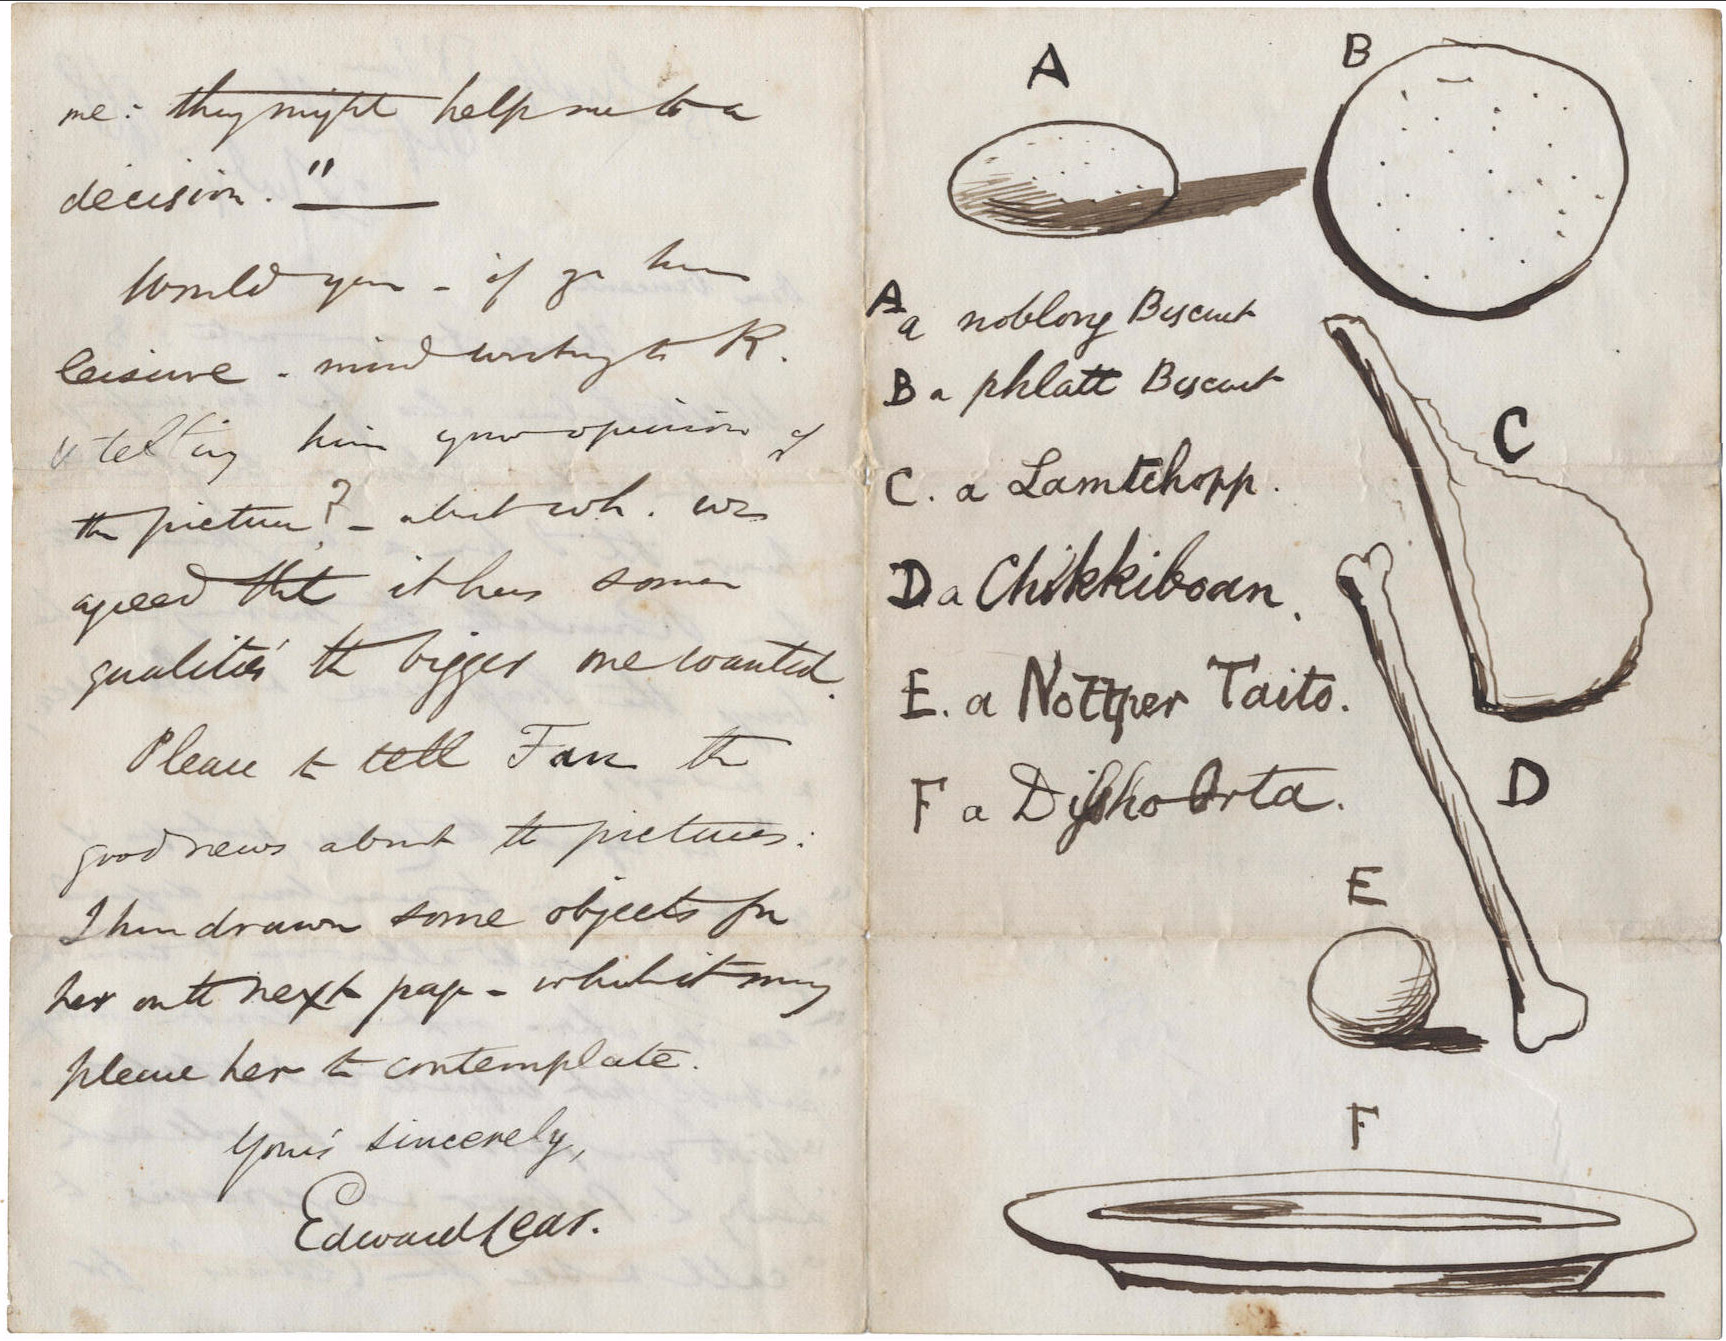 me: they might help me to a
decision." —
Would you - if you have
leisure - mind writing to R.
& telling him your opinion of
the picture? - about wh. we
agreed that it has some
qualities the bigger one wanted.
Please to tell Fan the
good news about the pictures:
I have drawn some objects for
her on the next page - which it may
please her to contemplate.
Yours sincerely,
Edward Lear.
A
B
A a noblong Biscuit
B a phlatt Biscuit
C
C. a Lamtchopp.
D a Chikkiboan.
E. a Nottper Taito.
D
F a Dishho Orta.
E
F